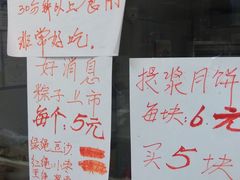 30分钟以上/食用
非常好吃.
好消息
粽子上市
每个:5元
绿绳豆沙
红绳小枣
提浆月饼
每块:6.元
买5块